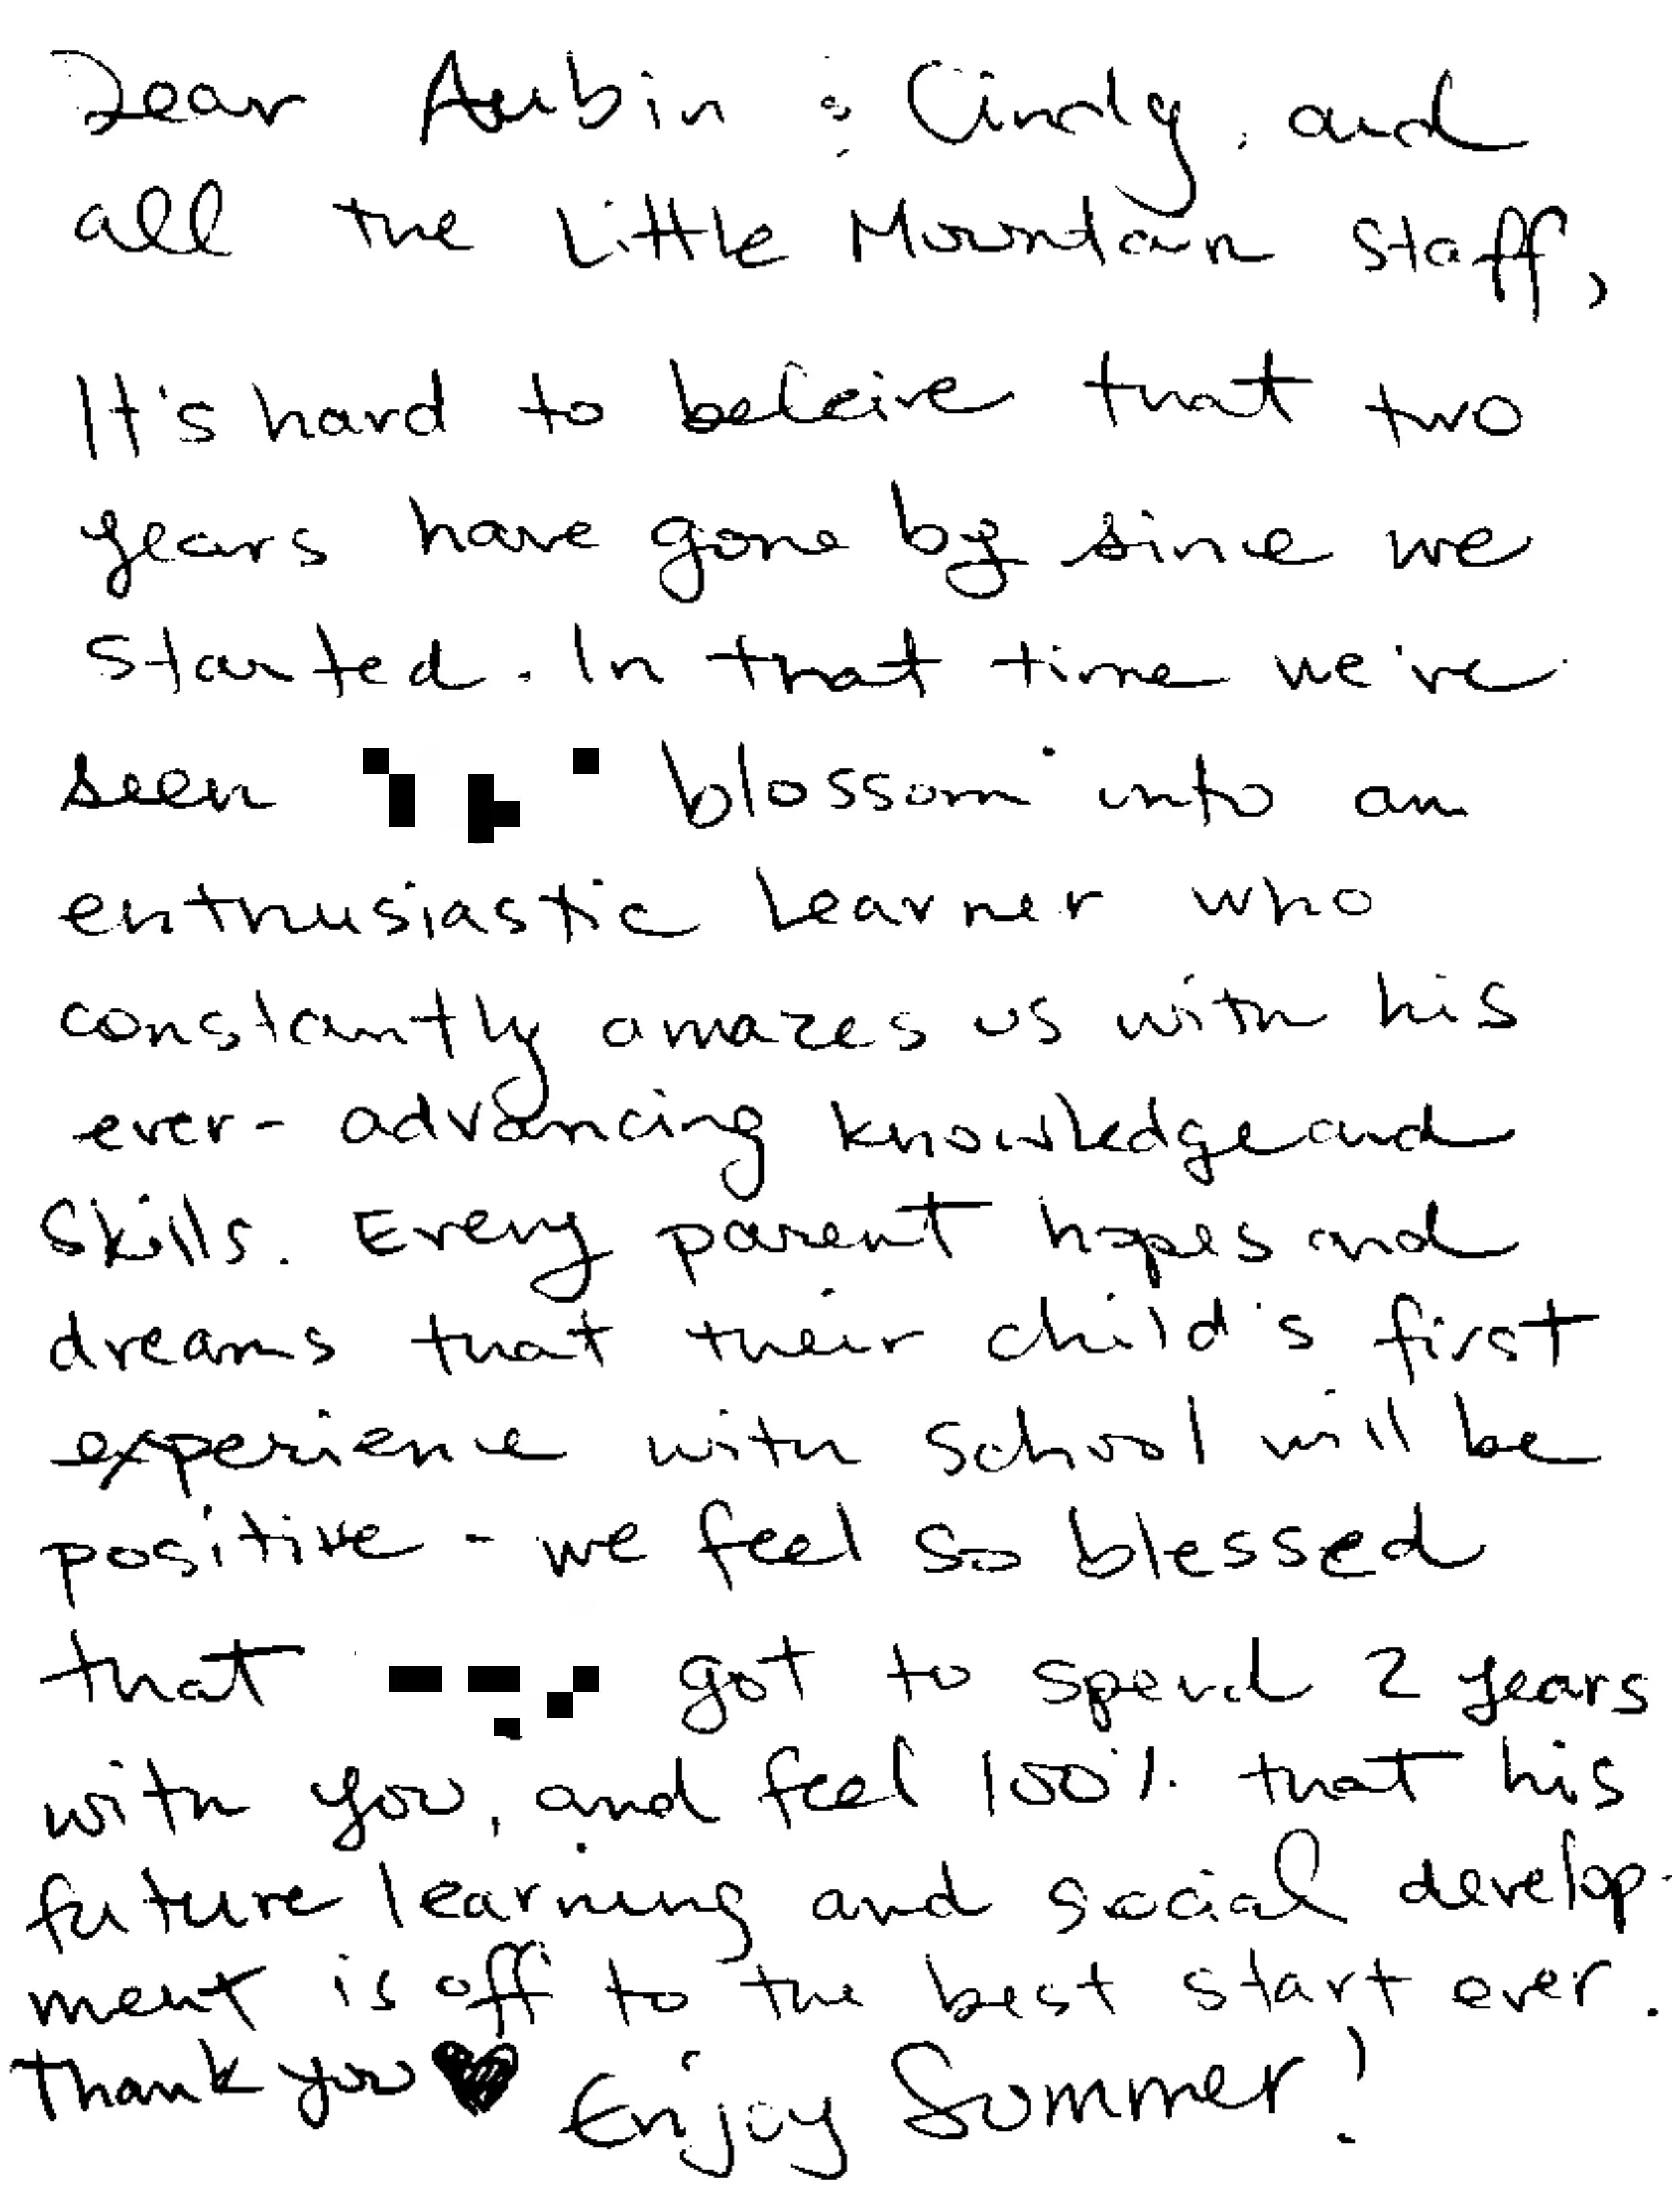 Dear Aubin & Cindy, and
all the Little Mountain Staff,
It's hard to beleive that two
years have gone by since we
started. In that time we've
seen blossom into an
enthusiastic learner who
constantly amazes us with his
ever-advancing knowledge and
skills. Every parent hopes and
dreams that their child's first
experience with school will be
positive - we feel so blessed
that got to spend 2 years
with you, and feel 100% that his
future learning and social develop-
ment is off to the best start ever.
Thank you ♥ Enjoy Summer!